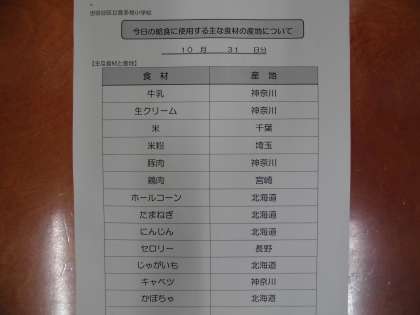 世田谷区立喜多見小学校
今日の給食に使用する主な食材の産地について
10 月 31 日分
【主な食材と産地】
食 材 産 地
牛乳 神奈川
生クリーム 神奈川
米 千葉
米粉 埼玉
豚肉 神奈川
鶏肉 宮崎
ホールコーン 北海道
たまねぎ 北海道
にんじん 北海道
セロリー 長野
じゃがいも 北海道
キャベツ 神奈川
かぼちゃ 北海道